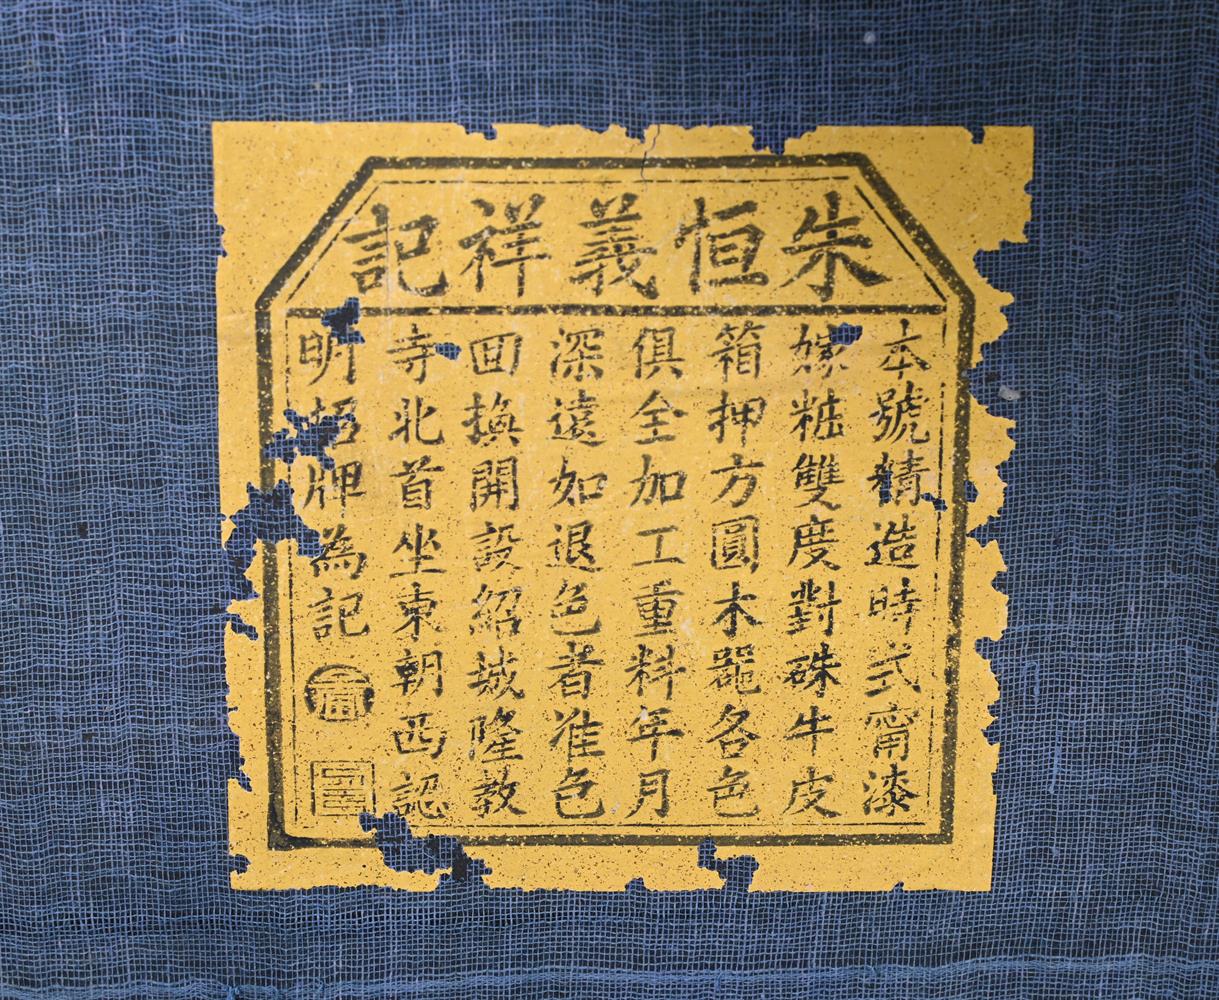 朱恒義祥記
本號精造時式甯漆
嫁粧雙度對硃牛皮
箱押方圓木噐各色
俱全加工重料年月
深遠如退色者准色
回換開設紹城隆教
寺北首坐東朝西認
明招牌為記